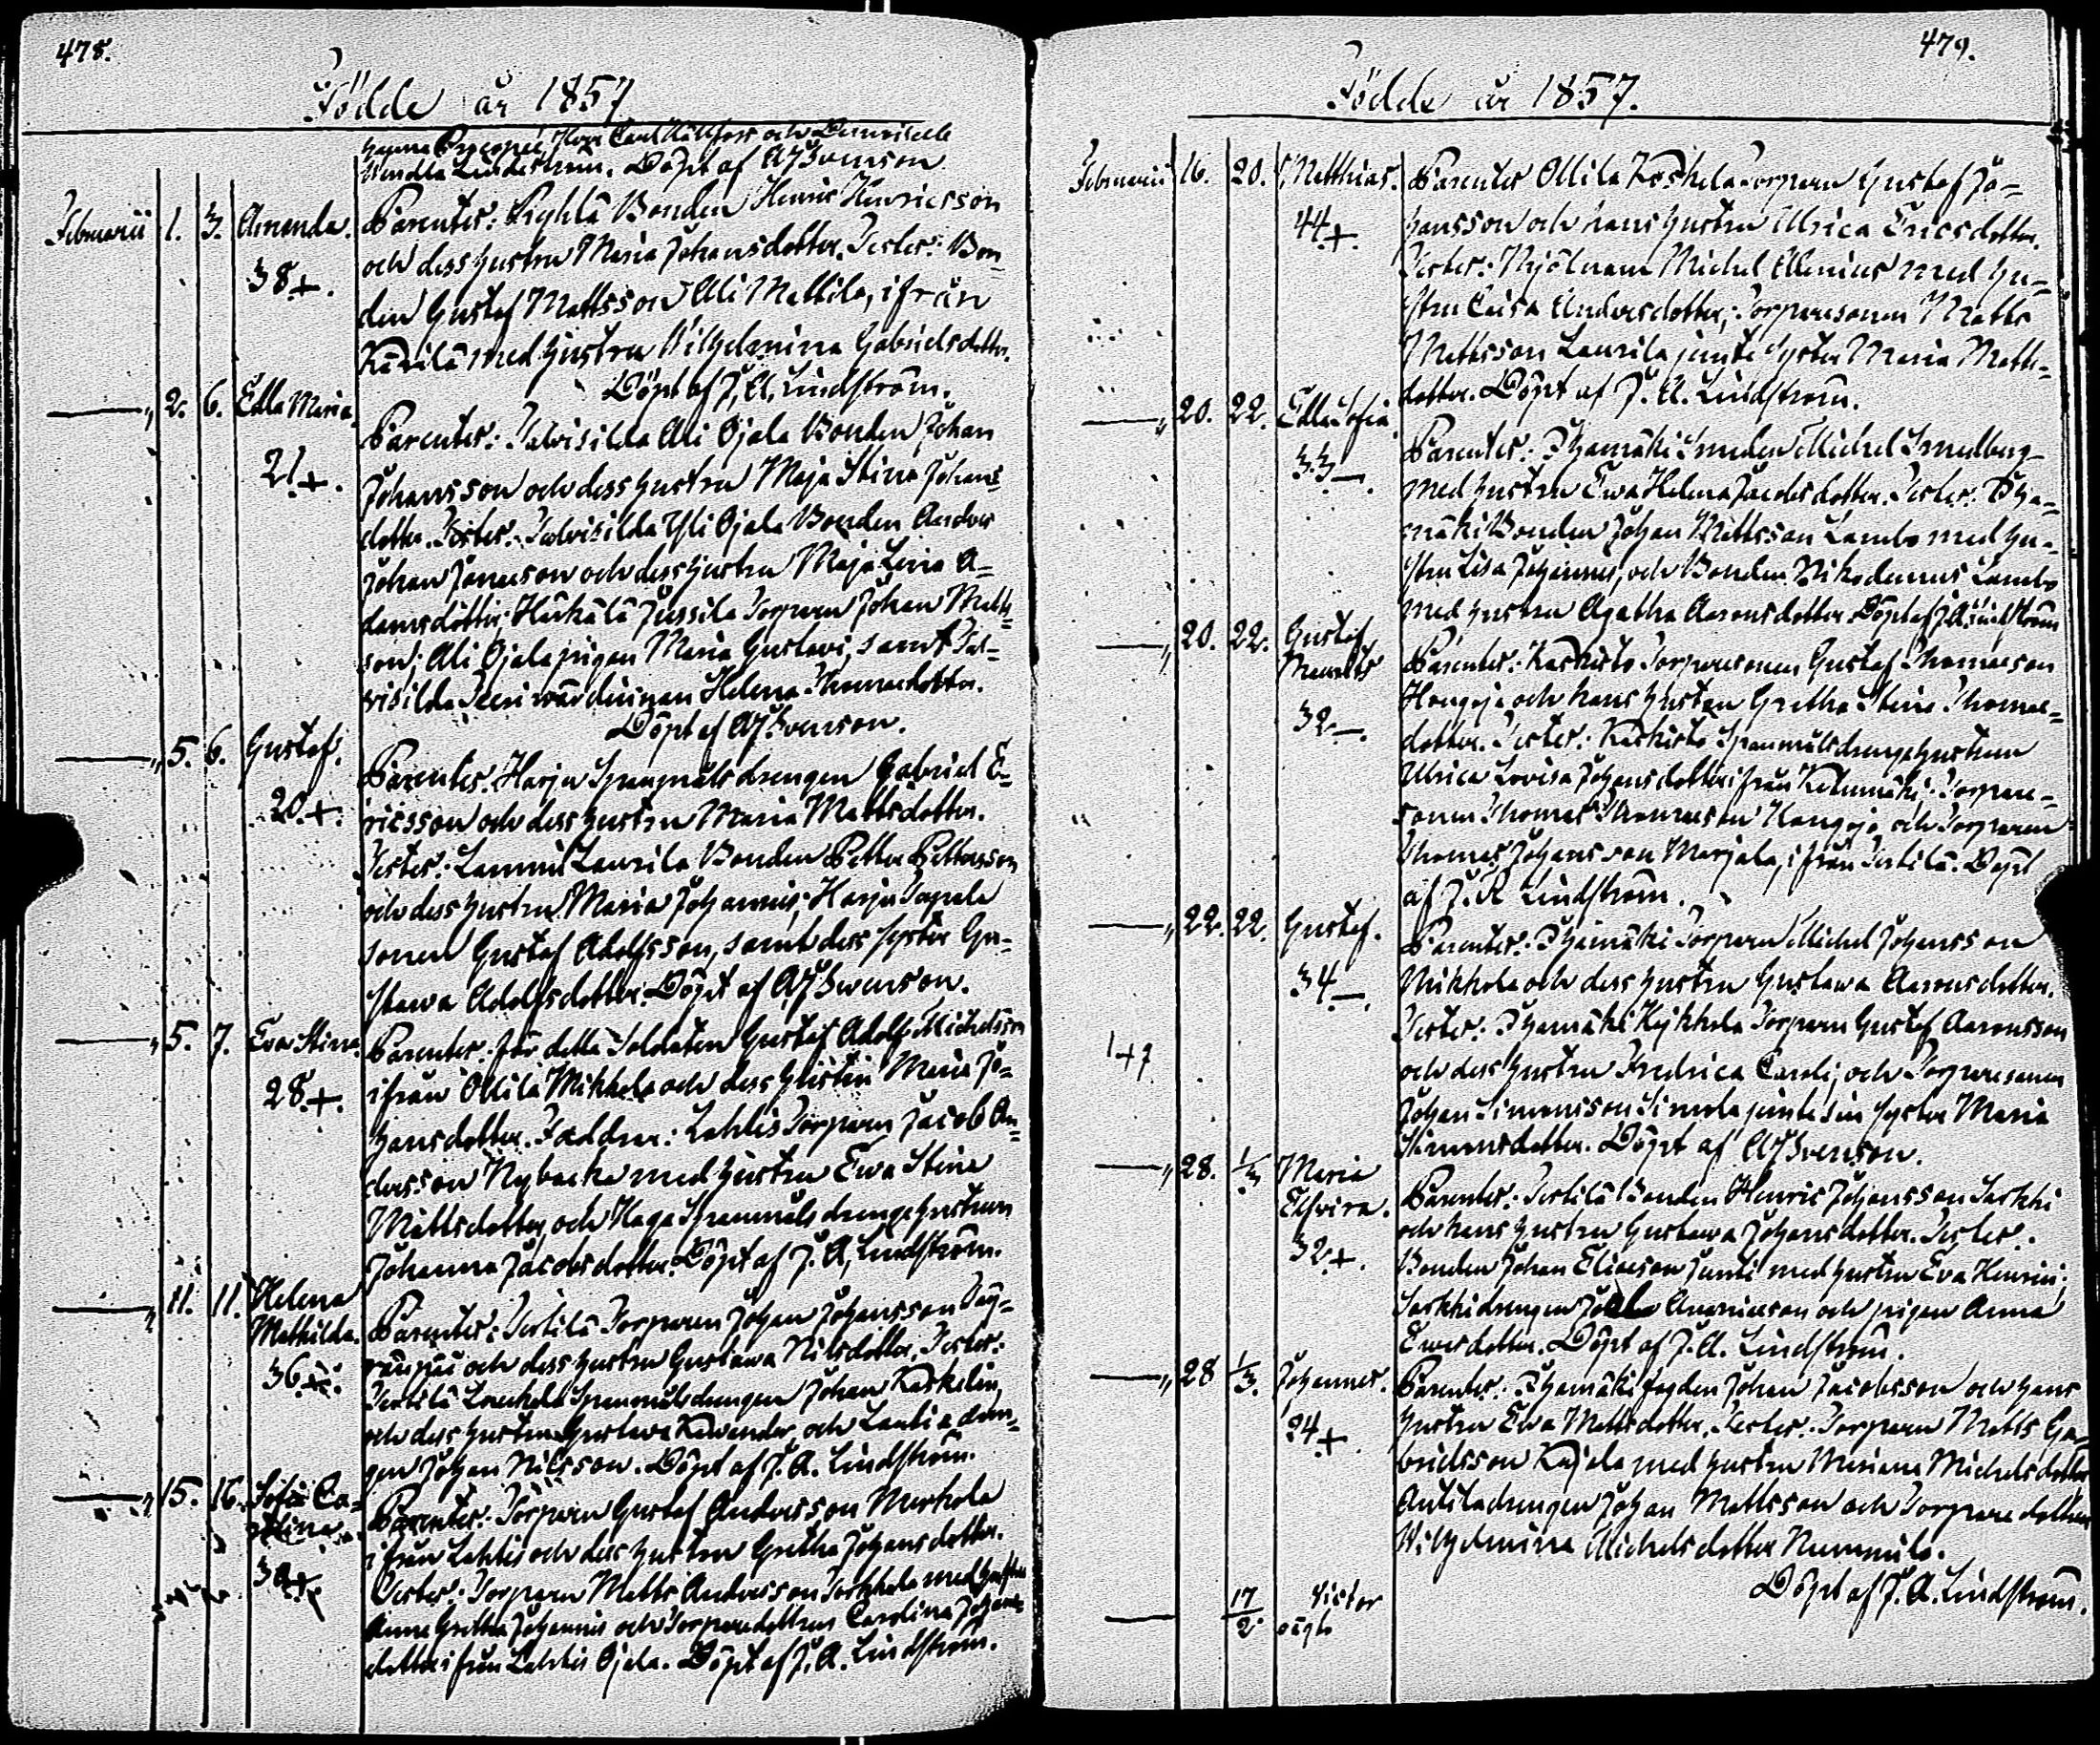 478.
Födde år 1857
Hanna Procopée, Herr Carl Hällfors och Demoiselle
Wendla Lindeström. Döpt af A J Svenson
Februarii 1. 3. Amanda. Parentes: Pyhtä Bonden Henric Henricsson
och dess hustru Maria Johansdotter. Testes: Bon-
38+. den Gustaf Mattsson Ali Mattila, ifrån
Kärilä med hustru Wilhelmina Gabrielsdotter.
Döpt af J. A. Lindström.
—„ 2. 6. Edla Maria. Parentes: Talvisilda Ali Ojala Bonden Johan
21+. Johansson och dess hustru Maja Stina Johans-
dotter. Testes: Talvisilda Yli Ojala Bonden Anders
Johan Jonasson och dess hustru Maja Lena A-
damsdotter; Härkälä Jussila Torparen Johan Matts-
son; Ali Ojala pigan Maria Gustavi, samt Tal-
visilda Helena Thomasdotter.
Döpt af A J Svenson.
—„ 5. 6. Gustaf. Parentes: Harju Spanmålsdrengen Gabriel E-
20+. ricsson och dess hustru Maria Mattsdotter.
Testes: Lammi Laurila Bonden Petter Pettersson
och dess hustru Maria Johannis; Harju Tapala
sonen Gustaf Adolfsson, samt dess syster Gu-
stava Adolfsdotter. Döpt af A J Svenson.
—„ 5. 7. Eva Stina. Parentes: för detta Soldaten Gustaf Adolf Michelsson
28+. ifrån Ollila Mikkola och dess hustru Maria Jo-
hansdotter. Faddrar: Lahtis Torparen Jacob An-
dersson Nybacka med hustru Ewa Stina
Mattsdotter, och Haga Spanmåls drengehustrun
Johanna Jacobsdotter. Döpt af J. A. Lindström.
—„ 11. 11. Helena
Mathilda. Parentes: Tertilä Torparen Johan Johansson
36+. och dess hustru Gustava Nilsdotter. Testes:
Tertilä Spanmålsdrengen Johan Koskelin,
och dess hustru Gustava och
gen Johan Nilsson. Döpt af J. A. Lindström.
—„ 15. 16. Sofia Ca-
Parentes: Torparen Gustaf Andersson Markola
ifrån Lahtis och dess hustru Gretha Johansdotter.
Testes: Torparen Matts Andersson med hustru
Anna Gretha Johannis och Torparedottren Carolina Johans-
dotter ifrån Lahtis Ojala. Döpt af J. A. Lindström.
479.
Födde år 1857.
Februarii 16. 20. Matthias. Parentes Ollila Koskela Torparen Gustaf Jo-
44+. hansson och hans hustru Ulrica Ericsdotter.
Testes: Mjölnaren Michel Alenius med hu-
stru Caisa Andersdotter; Torparesonen Matts
Mattsson Laurila jemte syster Maria Matts-
dotter. Döpt af J. A. Lindström.
—„ 20. 22. Edla Sofia. Parentes: Ihamäki Smeden Michel Smedberg
33—. med hustru Ewa Helena Jacobsdotter. Testes: Iha-
mäki Bonden Johan Mattsson Lambo med hu-
stru Lisa Johannis, och Bonden Nikodemus Lambo
med hustru Agatha Aaronsdotter. Döpt af J. A. Lindström
—„ 20. 22. Gustaf
Maurits Parentes: Koskisto Torparesonen Gustaf Thomasson
32—. Hongoja och hans hustru Gretha Stina Thomas-
dotter. Testes: Koskisto Spanmålsdrengehustrun
Ulrica Lovisa Johansdotter ifrån Ketunmäki; Torpare-
sonen Thomas Thomasson Hongoja, och Torparen
Thomas Johansson Marjala, ifrån Tertilä. Döpt
af J. A Lindström.
—„ 22. 22. Gustaf. Parentes: Ihamäki Torparen Michel Johansson
34—. Mikkola och dess hustru Gustava Aaronsdotter.
Testes: Ihamäki Torparen Gustaf Aaronsson
147 och dess hustru Fredrica Caroli, och Torparesonen
Johan Simonsson Simola jemte sin syster Maria
Simonsdotter. Döpt af A J Svenson.
—„ 28. 1/3 Maria
Elvira. Parentes: Tertilä Bonden Henric Johansson Sarkki
32+. och hans hustru Gustava Johansdotter. Testes:
Bonden Johan Eliasson Junti med hustru Eva Henrici;
Sarkki drengen och pigan Anna
Ewasdotter. Döpt af J. A. Lindström.
—„ 28 1/3. Johannes. Parentes: Ihamäki fogden Johan Jacobsson och hans
24+. hustru Ewa Mattsdotter. Testes: Torparen Matts Ga-
brielsson Kujala med hustru Mariana Michelsdotter
Anttila drengen Johan Mattsson och Torparedottren
Wilhelmina Michelsdotter Nummila.
Döpt af J. A. Lindström.
— 17/2 Victor
oägta